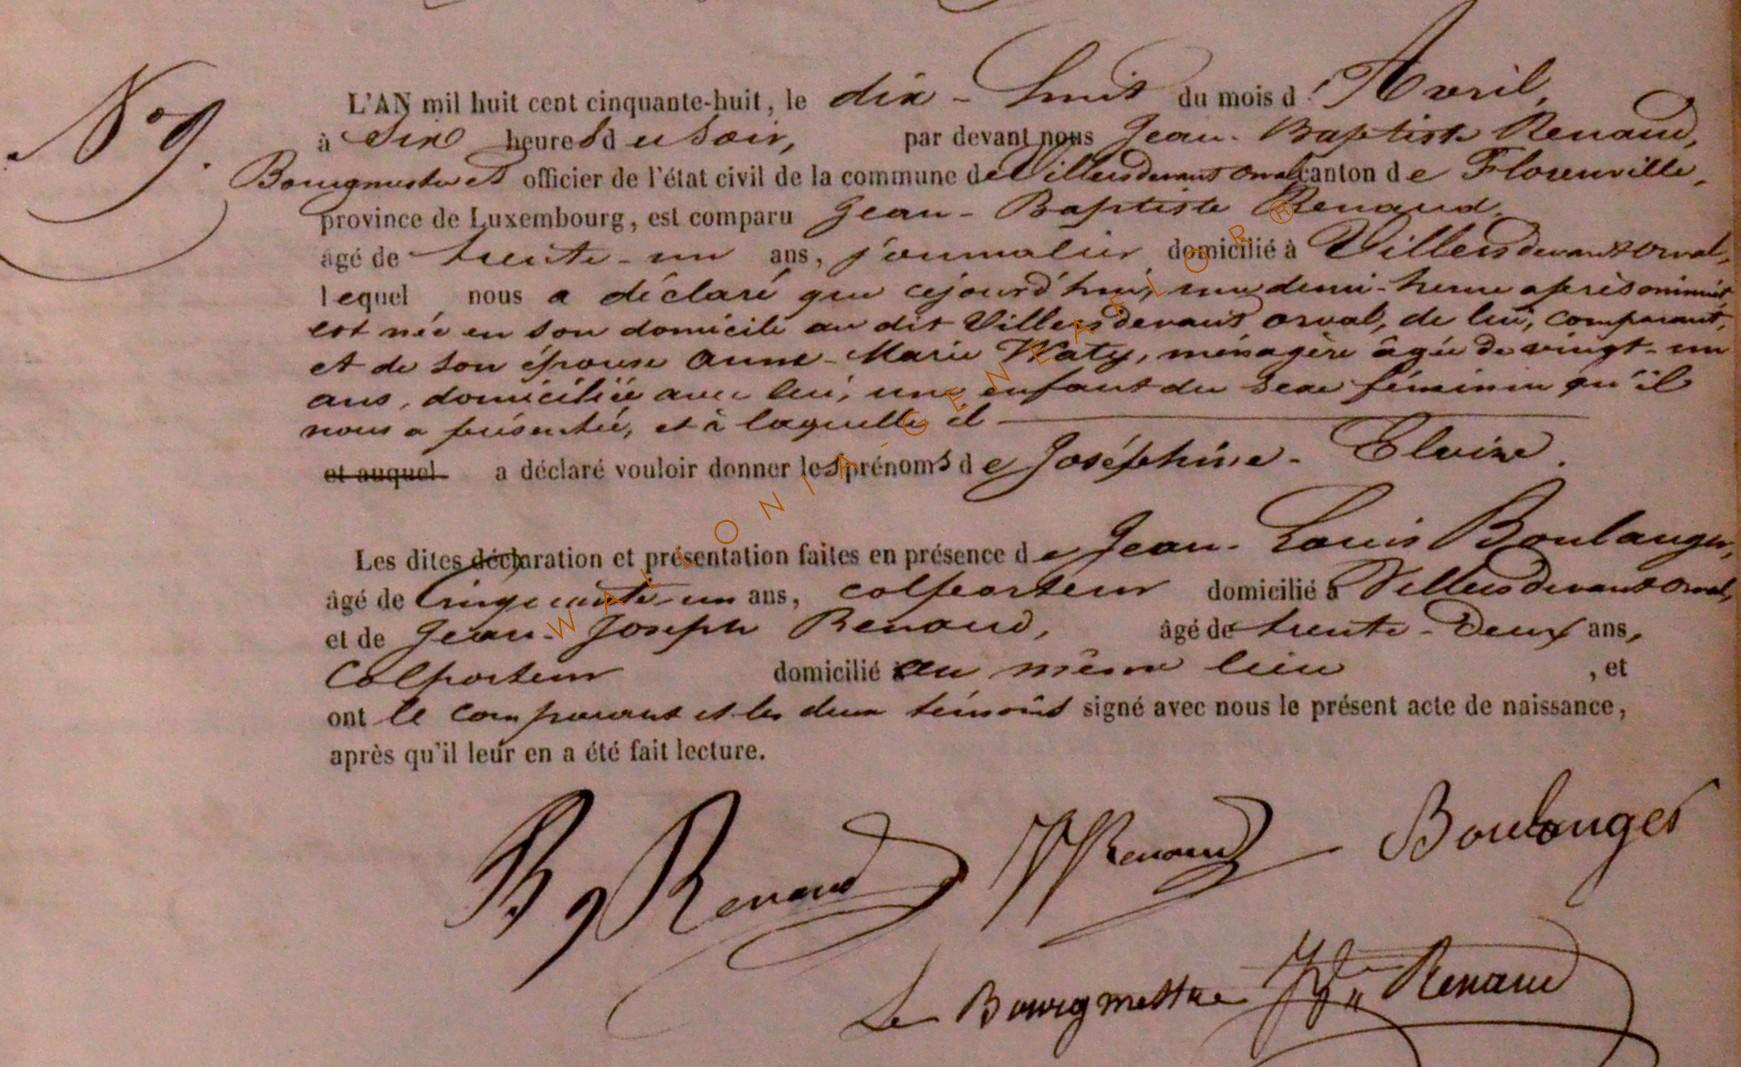 N° 9.
L'AN mil huit cent cinquante-huit, le dix-huit du mois d'Avril,
à Six heures du Soir, par devant nous Jean-Baptiste Renaud,
Bourgmestre et officier de l'état civil de la commune de Villersdevantorval canton de Florenville,
province de Luxembourg, est comparu Jean-Baptiste Renaud,
âgé de trente-un ans, journalier domicilié à Villersdevantorval,
lequel nous a déclaré que cejourd'hui, une demi-heure après minuit
est née en son domicile au dit Villersdevant orval, de lui, comparant,
et de son épouse Anne-Marie Waty, ménagère âgée de vingt-un
ans, domiciliée avec lui, une enfant du sexe féminin qu'il
nous a présentée, et à laquelle il
et auquel a déclaré vouloir donner les prénoms de Joséphine-Eloïse.
Les dites déclaration et présentation faites en présence de Jean-Louis Boulanger,
âgé de Cinquante-un ans, colporteur domicilié à Villersdevantorval,
et de Jean-Joseph Renaud, âgé de trente-Deux ans,
Colporteur domicilié au même lieu , et
ont le comparant et les deux témoins signé avec nous le présent acte de naissance,
après qu'il leur en a été fait lecture.
Renaud Renaud Boulanger
Le Bourgmestre Renaud
WALLONIA-GENEAFLOR®